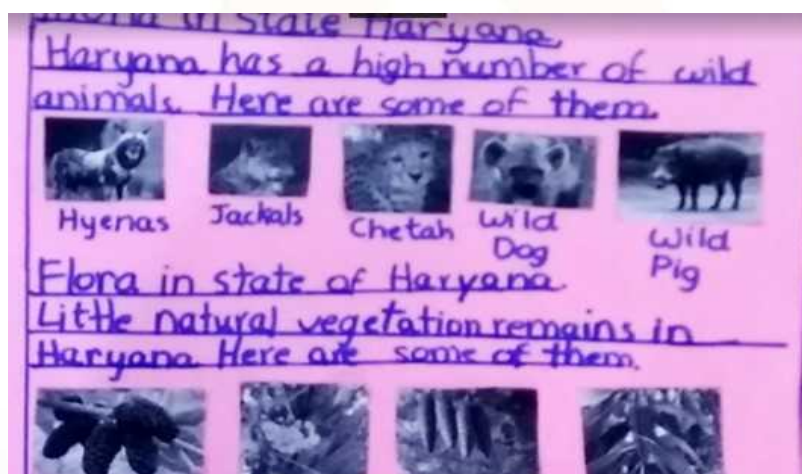 in State Haryana,
Haryana has a high number of wild
animals. Here are some of them.
Hyenas Jackals Chetah Wild Dog Wild Pig
Flora in state of Haryana.
Little natural vegetation remains in
Haryana Here are some of them.